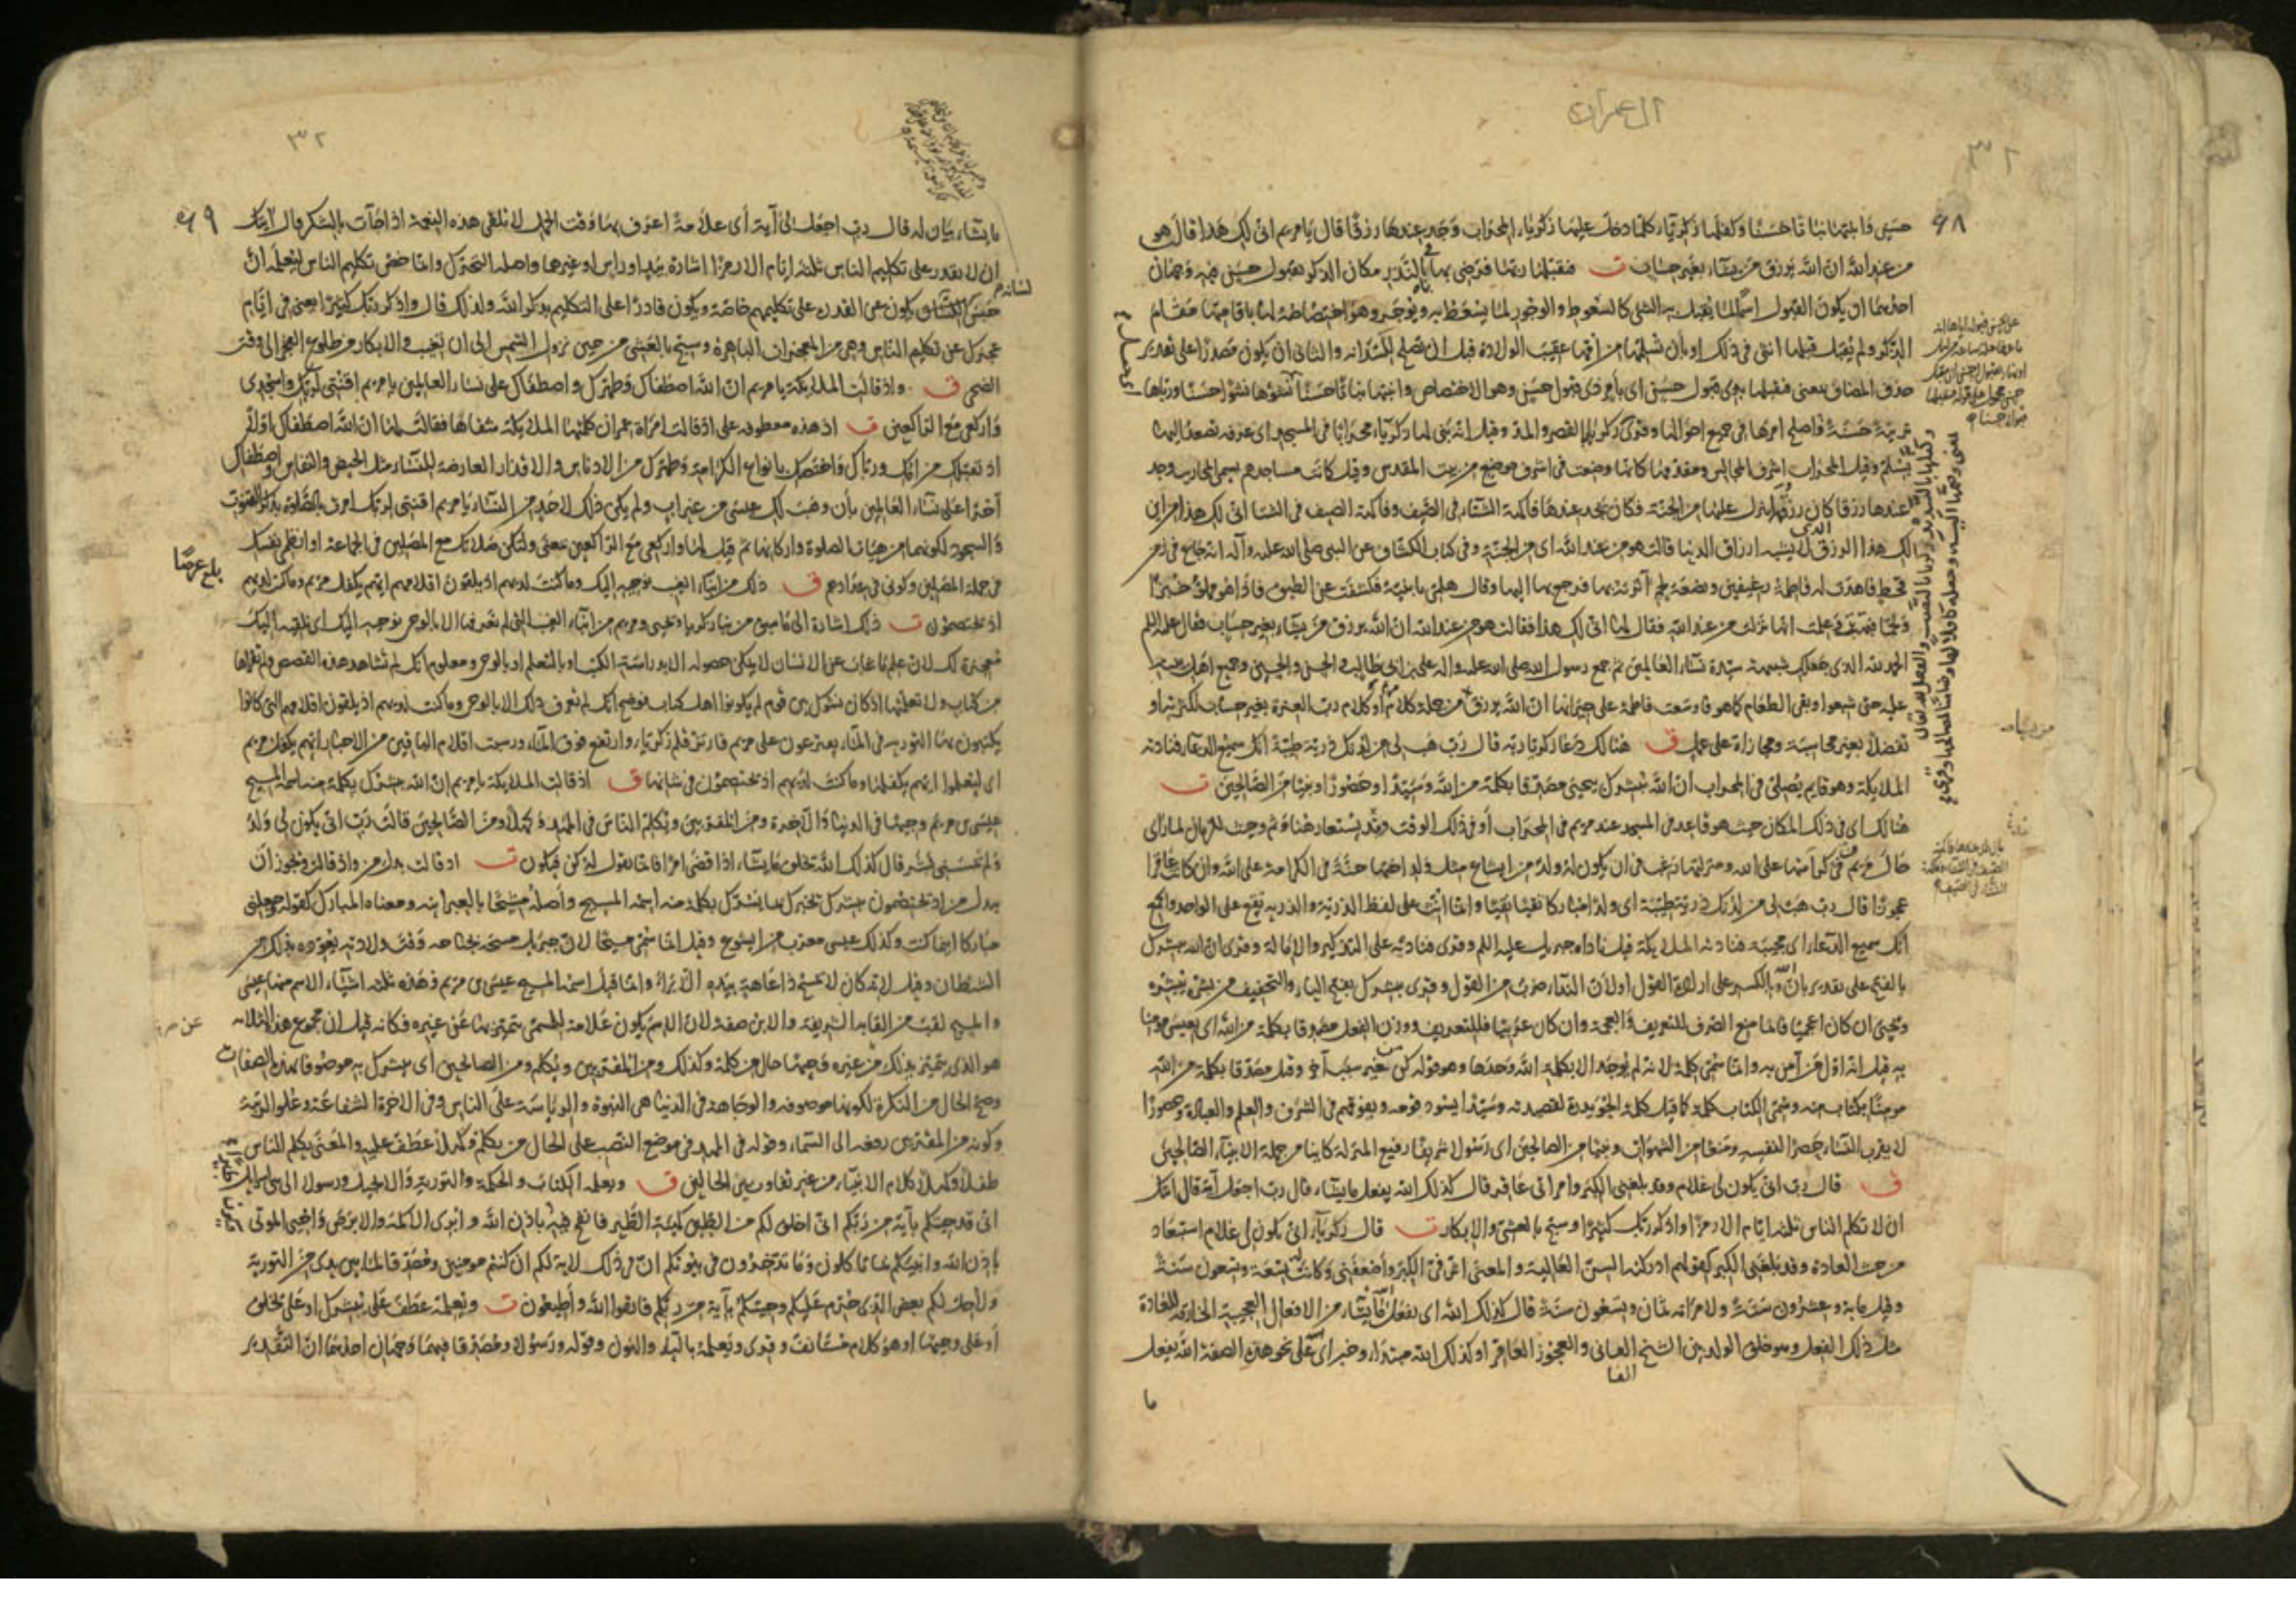 ال عمران
٣٢
٦٨
حسن وانبتها نباتا حسنا وكفلها زكريا كلما دخل عليها زكرياء المحراب وجد عندها رزقا قال يا مريم انى لك هذا قالت هو
من عند الله ان الله يرزق من يشاء بغير حساب ت فتقبلها ربها فرضى بها في النذر مكان الذكر بقبول حسن فيه وجهان
احدهما ان يكون القبول اسم لما يقبل به الشئ كالسعوط والوجور لما يسعط به ويوجر وهو اختصاصه لها باقامتها مقام
الذكر ولم يقبل قبلها انثى فى ذلك او بأن تسلمها من امها عقيب الولادة قبل ان تصلح للسدانة والثانى ان يكون مصدرا على تقدير
حذف المضاف بمعنى فتقبلها بذى قبول حسن اى بأمر ذى قبول حسن وهو الاختصاص وانبتها نباتا حسنا
تربية حسنة فاصلح امرها فى جميع احوالها وقرئ زكريا بالقصر والمد وقيل انه بنى لها زكرياء محرابا فى المسجد اى غرفة تصعد اليها
بسلم وقيل المحراب اشرف المجالس ومقدمها كانها وضعت فى اشرف موضع من بيت المقدس وقيل كانت مساجدهم تسمى المحاريب وجد
عندها رزقا كان رزقها ينزل عليها من الجنة فكان يجد عندها فاكهة الشتاء فى الصيف وفاكهة الصيف فى الشتا انى لك هذا من اين
لك هذا الرزق الذى لا يشبه ارزاق الدنيا قالت هو من عند الله اى من الجنة وفى كتاب الكشاف عن النبى صلى الله عليه وآله انه جاع فى زمن
قحط فاهدت له فاطمة رغيفين وبضعة لحم آثرته بها فرجع بها اليها وقال هلمى يا بنية فكشفت عن الطبق فاذا هو مملو خبزا
ولحما فبهتت وعلمت انها نزلت من عند الله فقال لها انى لك هذا فقالت هو من عند الله ان الله يرزق من يشاء بغير حساب فقال عليه السلم
الحمد لله الذى جعلك شبيهة سيدة نساء العالمين ثم جمع رسول الله صلى الله عليه واله على بن ابى طالب والحسن والحسين وجميع اهل بيته
عليه حتى شبعوا وبقى الطعام كما هو فاوسعت فاطمة على جيرانها ان الله يرزق من جملة كلام مريم او كلام رب العزة بغير حساب لكثرته او
تفضلا بغير محاسبة ومجازاة على عمل ق هنالك دعا زكريا ربه قال رب هب لى من لدنك ذرية طيبة انك سميع الدعاء فنادته
الملايكة وهو قايم يصلى فى المحراب ان الله يبشرك بيحيى مصدقا بكلمة من الله وسيدا وحصورا ونبيا من الصالحين ت
هنالك اى فى ذلك المكان حيث هو قاعد فى المسجد عند مريم فى المحراب أو فى ذلك الوقت وقد يستعار هنا وثم وحيث للزمان لما راى
حال مريم فى كرامتها على الله ومنزلتها رغب فى ان يكون له ولد من ايشاع مثل ولد اختها حنة فى الكرامة على الله وان كانت عاقرا
عجوزا قال رب هب لى من لدنك ذرية طيبة اى ولدا مباركا تقيا نقيا وانما انث على لفظ الذرية والذرية يقع على الواحد والجمع
انك سميع الدعاء اى مجيبه فنادته الملايكة قيل ناداه جبريل عليه السلم وقرئ فناديه على التذكير والامالة وقرئ ان الله يبشرك
بالفتح على تقدير بان الله وبالكسر على ارادة القول او لان النداء ضرب من القول وقرئ يبشرك بفتح الياء والتخفيف من بشره يبشره
ويحيى ان كان اعجميا فانما منع الصرف للتعريف والعجمة وان كان عربيا فللتعريف ووزن الفعل مصدقا بكلمة من الله اى بعيسى مؤمنا
به قيل انه اول من آمن به وانما سمى كلمة لانه لم يوجد الا بكلمة الله وحدها وهو قوله كن من غير سبب آخر وقيل مصدقا بكلمة من الله
مومنا بكتاب منه وسمى الكتاب كلمة كما قيل كلمة الحويدرة لقصيدته وسيدا يسود قومه ويفوقهم فى الشرف والعلم والعبادة وحصورا
لا يقرب النساء حصرا لنفسه ومنعا من الشهوات ونبيا من الصالحين اى رسولا شريفا رفيع المنزلة كاينا من جملة الانبياء الصالحين
ق قال رب انى يكون لى غلام وقد بلغنى الكبر وامراتى عاقر قال كذلك الله يفعل ما يشاء قال رب اجعل لى آية قال آيتك
ان لا تكلم الناس ثلثة ايام الا رمزا واذكر ربك كثيرا وسبح بالعشى والابكار ت قال زكرياء انى يكون لى غلام استبعاد
من حيث العادة وقد بلغنى الكبر كقولهم ادركته السن العالية والمعنى اثر فىّ الكبر وأضعفنى وكانت له تسعة وتسعون سنة
وقيل مايه وعشرون سنة ولامراته ثمان وتسعون سنة قال كذلك الله اى يفعل ما يشاء من الافعال العجيبة الخارقة للعادة
مثل ذلك الفعل وهو خلق الولد بين الشيخ الفانى والعجوز العاقر او كذلك الله مبتداء وخبر اى على نحو هذه الصفة الله يفعل
ما
٣٢
٦٩
ما يشاء بيان له قال رب اجعل لى آية أى علامة اعرف بها وقت الحمل لاتلقى هذه النعمة اذا جآت بالشكر قال آيتك
ان لا يقدر على تكليم الناس ثلثة ايام الا رمزا اشارة بيد او راس او غيرها واصله التحرك وانما خص تكليم الناس ليعلمه أن
حبس لسانه يكون عن القدرة على تكليمهم خاصة ويكون قادرا على التكليم بذكر الله ولذلك قال واذكر ربك كثيرا يعنى فى ايام
عجزك عن تكليم الناس وهى من المعجزات الباهرة وسبح بالعشى من حين نزول الشمس الى ان تغيب والابكار من طلوع الفجر الى وقت
الضحى ق واذ قالت الملايكة يا مريم ان الله اصطفاك وطهرك واصطفاك على نساء العالمين يا مريم اقنتى لربك واسجدى
واركعى مع الراكعين ت اذ هذه معطوفة على اذ قالت امراة عمران كلمتها الملايكة شفاها فقالت لها ان الله اصطفاك اولا
اذ تقبلك من امك ورباك واختصك بانواع الكرامة وطهرك من الادناس والاقذار العارضة للنساء مثل الحيض والنفاس واصطفاك
آخرا على نساء العالمين بأن وهب لك عيسى من غير اب ولم يكن ذلك لاحد من النساء يا مريم اقنتى لربك امرت بالصلوة بذكر القنوت
والسجود لكونهما من هيآت الصلوة واركانها ثم قيل لها واركعى مع الراكعين بمعنى ولتكن صلاتك مع المصلين فى الجماعة او انظمى نفسك
فى جملة المصلين وكونى فى عدادهم ق ذلك من انباء الغيب نوحيه اليك وما كنت لديهم اذ يلقون اقلامهم ايهم يكفل مريم وما كنت لديهم
اذ يختصمون ت ذلك اشارة الى ما سبق من نبا زكريا ويحيى ومريم من انباء الغيب التى لم تعرفها الا بالوحى نوحيه اليك اى نلقيه اليك
معجزة لك لان علم ما غاب عن الانسان لا يمكن حصوله الا بدراسة الكتب او بالتعلم او بالوحى ومعلوم انك لم تشاهد هذه القصص ولم تقراها
من كتاب ولا تعلمتها اذ كان نشوك بين قوم لم يكونوا اهل كتاب فوضح انك لم تعرف ذلك الا بالوحى وما كنت لديهم اذ يلقون اقلامهم التى كانوا
يكتبون بها التورية فى الماء يقترعون على مريم فارتز قلم زكرياء وارتفع فوق الماء ورسبت اقلام الباقين من الاحبار ايهم يكفل مريم
اى ليعلموا ايهم يكفلها وما كنت لديهم اذ يختصمون فى شانها ق اذ قالت الملايكة يا مريم ان الله يبشرك بكلمة منه اسمه المسيح
عيسى بن مريم وجيها فى الدنيا والآخرة ومن المقربين ويكلم الناس فى المهد وكهلا ومن الصالحين قالت رب انى يكون لى ولد
ولم يمسسنى بشر قال كذلك الله يخلق ما يشاء اذا قضى امرا فانما يقول له كن فيكون ت اذ قالت بدل من واذ قالت ويجوز ان
يبدل من اذ يختصمون يبشرك يخبرك بما يسرك بكلمة منه اسمه المسيح وأصله مشيحا بالعبرانيه ومعناه المبارك كقوله وجعلنى
مباركا اينما كنت وكذلك عيسى معرب من ايشوع وقيل انما سمى مسيحا لان جبريل مسحه بجناحه وقت ولادته يعوذه بذلك من
الشيطان وقيل لانه كان لا يمسح ذا عاهة بيده الا برأ وانما قيل اسمه المسيح عيسى بن مريم وهذه ثلثة اشياء الاسم منها عيسى
والمسيح لقب من القاب الشريفة والابن صفة لان الاسم يكون علامة للمسمى يتميز بها عن غيره فكانه قيل ان مجموع هذه الثلاثه
هو الذى يتميز بذلك من غيره وجيها حال من كلمة وكذلك ومن المقربين ويكلم ومن الصالحين أى يبشرك به موصوفا بهذه الصفات
وصح الحال من النكرة لكونها موصوفه والوجاهة فى الدنيا هى النبوة والرياسة على الناس وفى الاخرة الشفاعة وعلو الدرجة
وكونه من المقربين رفعه الى السماء وقوله فى المهد فى موضع النصب على الحال من يكلم وكهلا عطف عليه والمعنى يكلم الناس
طفلا وكهلا كلام الانبياء من غير تفاوت بين الحالين ق ويعلمه الكتاب والحكمة والتورية والانجيل ورسولا الى بنى اسرائيل
انى قد جئتكم بآية من ربكم انى اخلق لكم من الطين كهيئة الطير فانفخ فيه باذن الله وابرئ الاكمه والابرص واحيى الموتى
باذن الله وانبئكم بما تاكلون وما تدخرون فى بيوتكم ان فى ذلك لاية لكم ان كنتم مومنين ومصدقا لما بين يدى من التورية
ولأحل لكم بعض الذى حرم عليكم وجئتكم بآية من ربكم فاتقوا الله وأطيعون ت ويعلمه عطف على يبشرك او على يخلق
أو على وجيها او هو كلام مستانف وقرئ ويعلمه بالياء والنون وقوله ورسولا ومصدقا فيهما وجهان احدهما ان التقدير
بلغ عرضا